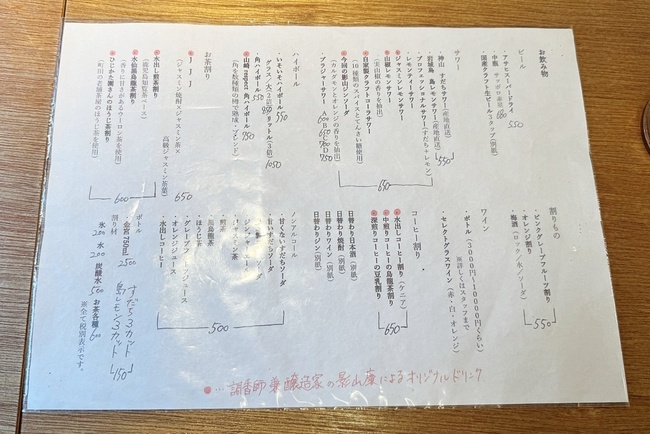 お飲み物
ビール
・アサヒスーパードライ 550
・中瓶 サッポロ赤星
・国産クラフト生ビール3タップ(別紙)
サワー
神山 すだちサワー(産地直送)
岩城島 島レモンサワー(産地直送)
・レモンティーサワー
・プロフェッショナルサワー(すだち+レモン)
550
・ジャスミンレモンサワー
・山椒レモンサワー
(実山椒の香りを抽出)
・自家製クラフトコーラサワー
(10種類のスパイスとてんさい糖使用)
・今回の影山ジンソーダ
(カルダモンとオレンジの香りを抽出)
650
ハイボール
・いもいもハイボール 550
・角ハイボール 550
・山崎 respect 角ハイボール 750
(角を数種類の樽で熟成、ブレンド)
お茶割り
・JJJ
(ジャスミン焼酎×ジャスミン茶×高級ジャスミン茶葉)
650
・水出し煎茶割り
(鹿児島知覧茶ベース)
・水仙烏龍茶割り
(香りに甘さがあるウーロン茶を使用)
・ひじかた園さんのほうじ茶割り
(町田の老舗茶屋のほうじ茶を使用)
600
割りもの
・ピンクグレープフルーツ割り
・オレンジ割り
・梅酒(ロック/水/ソーダ)
550
ワイン
・ボトル(3000円~10000円くらい)
※詳しくはスタッフまで
・セレクトグラスワイン(赤・白・オレンジ)
コーヒー割り
・水出しコーヒー割り(ケニア)
・中煎りコーヒーの烏龍茶割り
・深煎りコーヒーの豆乳割り
650
日替わり日本酒(別紙)
日替わり焼酎(別紙)
日替わりワイン(別紙)
日替わりジン(別紙)
ノンアルコール
・甘くないすだちソーダ
・甘いすだちソーダ
・煎茶
・烏龍茶
・ほうじ茶
・グレープフルーツジュース
・オレンジジュース
・水出しコーヒー
500
ボトル
・金宮 720ml 2500
割り材
氷 200 水 200 炭酸水 500 お茶各種 600
すだち3カット
島レモン3カット
450
※全て税別表示です。
●…調香師兼醸造家の影山康によるオリジナルドリンク